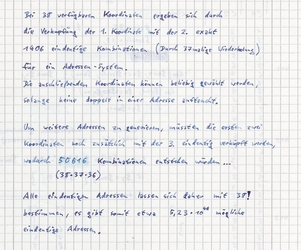 Bei 38 verfügbaren Koordinaten ergeben sich durch
die Verknüpfung der 1. Koordinate mit der 2. exakt
1406 eindeutige Kombinationen (Durch 37malige Wiederholung)
für ein Adressen-System.
Die anschließenden Koordinaten können beliebig gewählt werden,
solange keine doppelt in einer Adresse auftaucht.
Um weitere Adressen zu generieren, müssten die ersten zwei
Koordinaten noch zusätzlich mit der 3. eindeutig verknüpft werden,
wodurch 50616 Kombinationen entstehen würden...
(38·37·36)
Alle eindeutigen Adressen lassen sich daher mit 38!
bestimmen, es gibt somit etwa 5,23·10⁴⁴ mögliche
eindeutige Adressen.